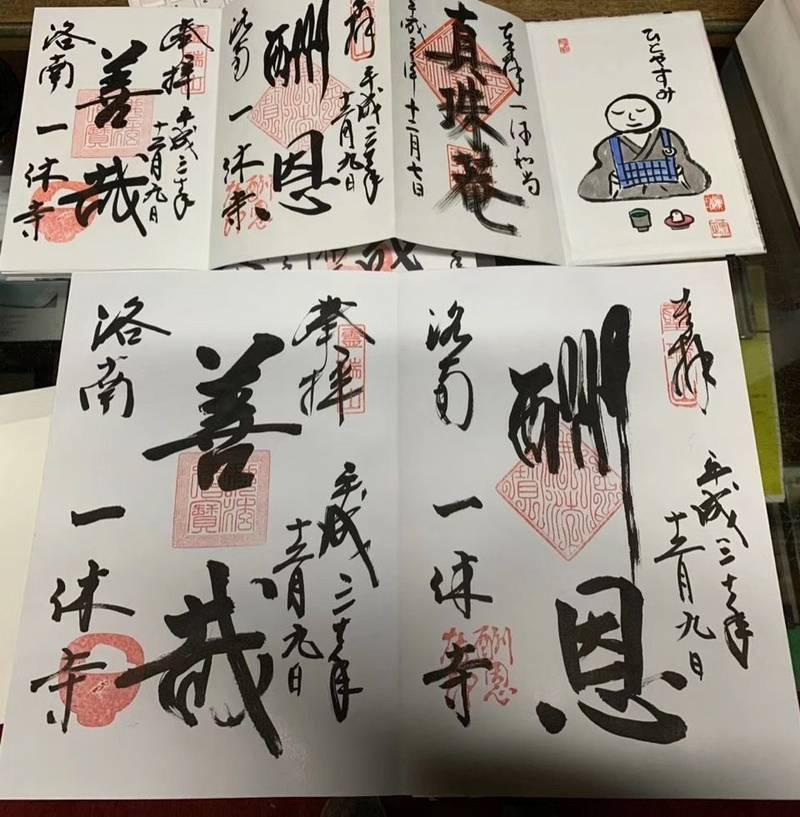 ひとやすみ
奉拝 一休和尚
真珠庵
平成三十年十二月七日
奉拝
平成三十年
十二月九日
酬恩
洛南 一休寺
奉拝
平成三十年
十二月九日
善哉
洛南 一休寺
奉拝
平成三十年
十二月九日
酬恩
洛南 一休寺
酬恩
奉拝
靈瑞山
平成三十年
十二月九日
善哉
洛南 一休寺